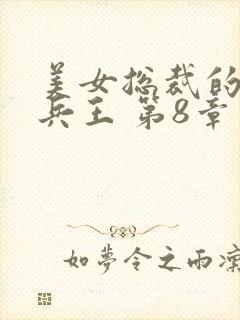 美女总裁的
兵王 第8章
如夢令之雨凛